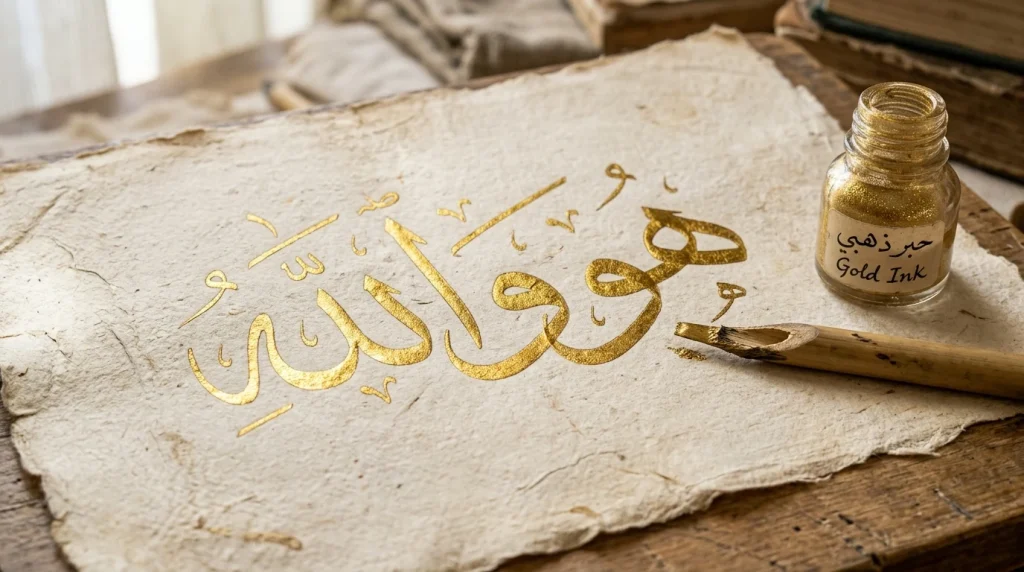 هُوَ وَاللَّهِ
حبر ذهبي
Gold Ink